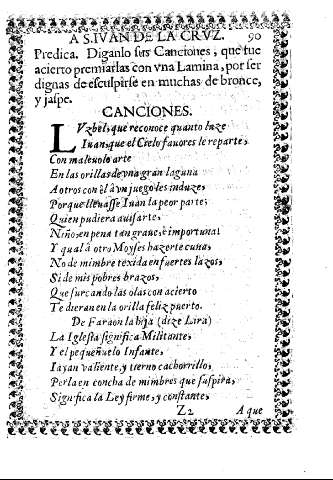 A S. IVAN DE LA CRVZ. 90
Predica. Diganlo sus Canciones, que fue
acierto premiarlas con vna Lamina, por ser
dignas de esculpirse en muchas de bronce,
y jaspe.
CANCIONES.
LVzbèl, que reconoce quanto luze
Iuan, que el Cielo fauores le reparte,
Con maleuolo arte
En las orillas de vna gran laguna
A otros con èl à vn juego les induze,
Porque lleuasse Iuan la peor parte;
Quien pudiera auisarte,
Niño, en pena tan graue, è importuna!
Y qual à otro Moyses hazerte cuna,
No de mimbre texida en fuertes lazos,
Si de mis pobres brazos,
Que surcando las olas con acierto
Te dieran en la orilla feliz puerto.
De Faraon la hija (dize Lira)
La Iglesia significa Militante,
Y el pequeñuelo Infante,
Iayan valiente, y tierno cachorrillo,
Perla en concha de mimbres que suspira,
Significa la Ley firme, y constante,
Z2 A que